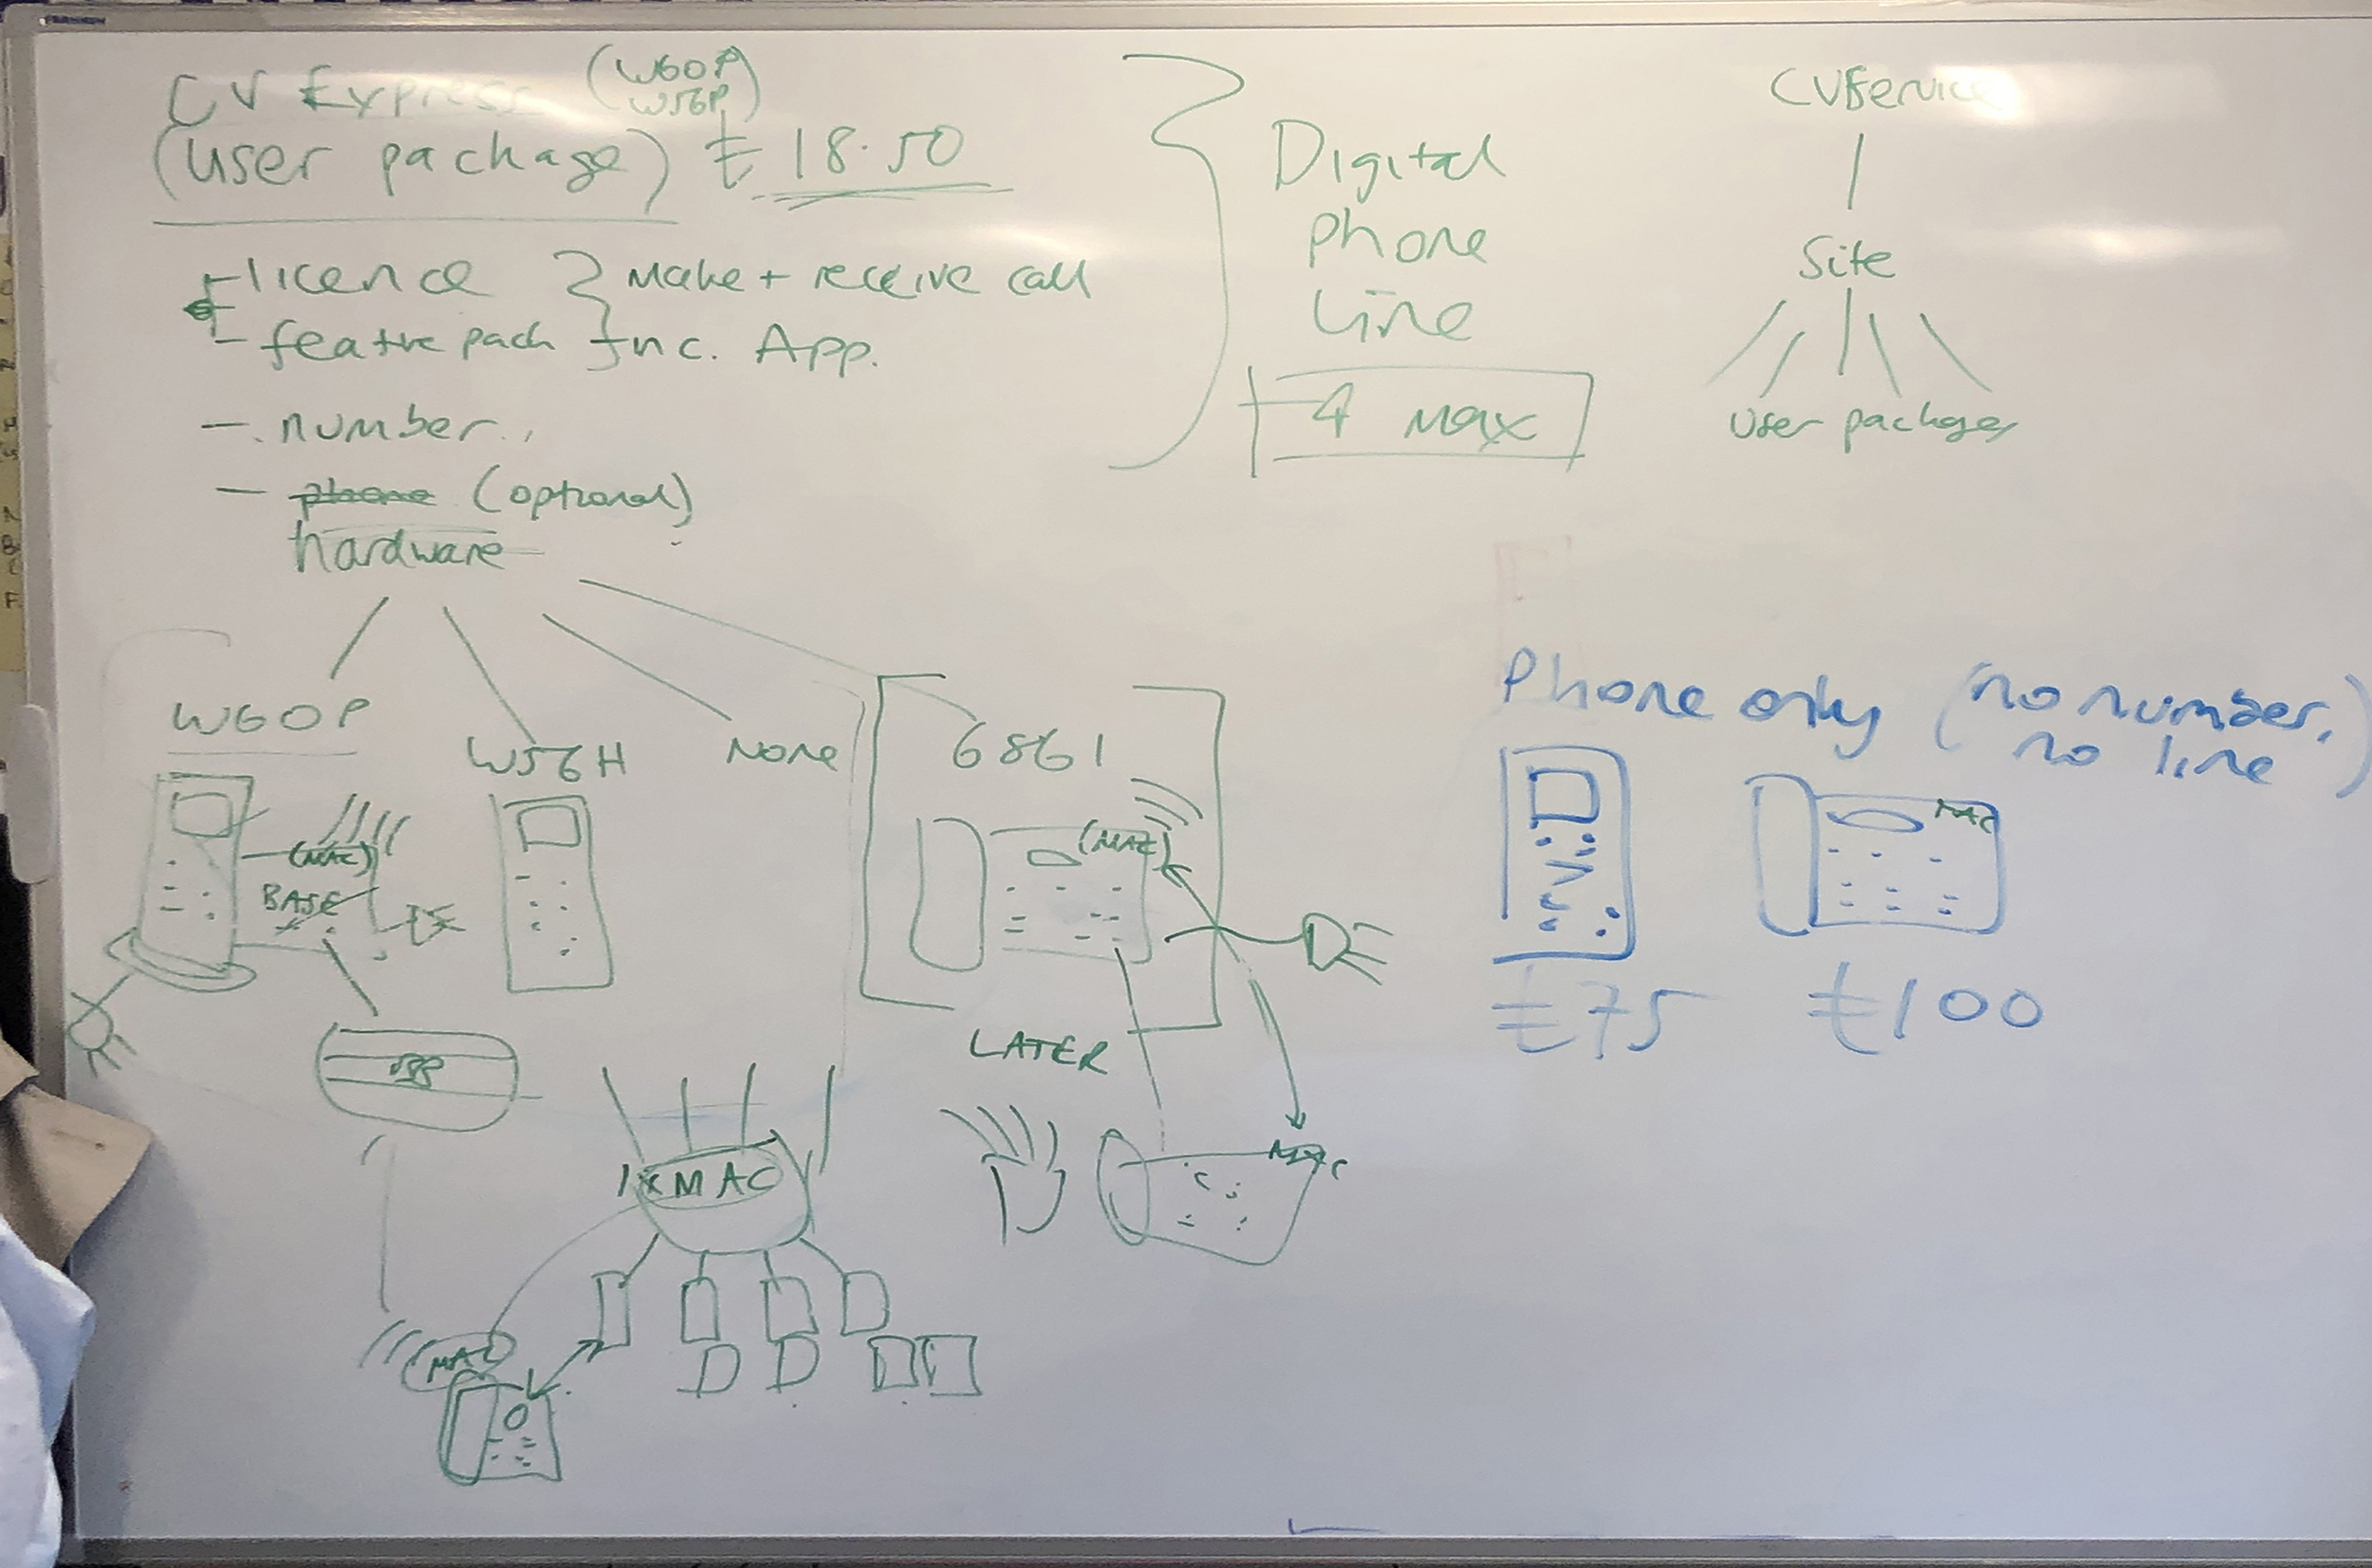 CV Express (W60P
W56P)
(user package) £18.50
- licence } Make + receive call
- featre pack } Inc. App.
- number
- phone (optional)
hardware
Digital
phone
Line
4 Max
Site
User packages
W60P
W56H
None
6861
(MAC)
BASE
(MAC)
LATER
1xMAC
MAC
MAC
Phone only (no number,
no line)
MAC
£75
£100